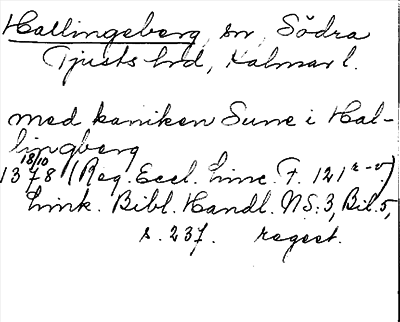 Hallingeberg sn, Södra
Tjusts hrd, Kalmar l.
med kaniken Sune i Hal-
lingberg
18/10
1378 (Reg. Eccl. Linc. F. 121 r-v)
Link. Bibl. Handl. NS: 3, Bil. 5,
s. 237. regest.